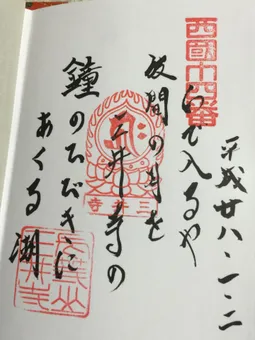 平成廿八・一・二
西國十四番
いで入るや
波間の月を
三井寺の
鐘のひびきに
あくる湖
三井寺